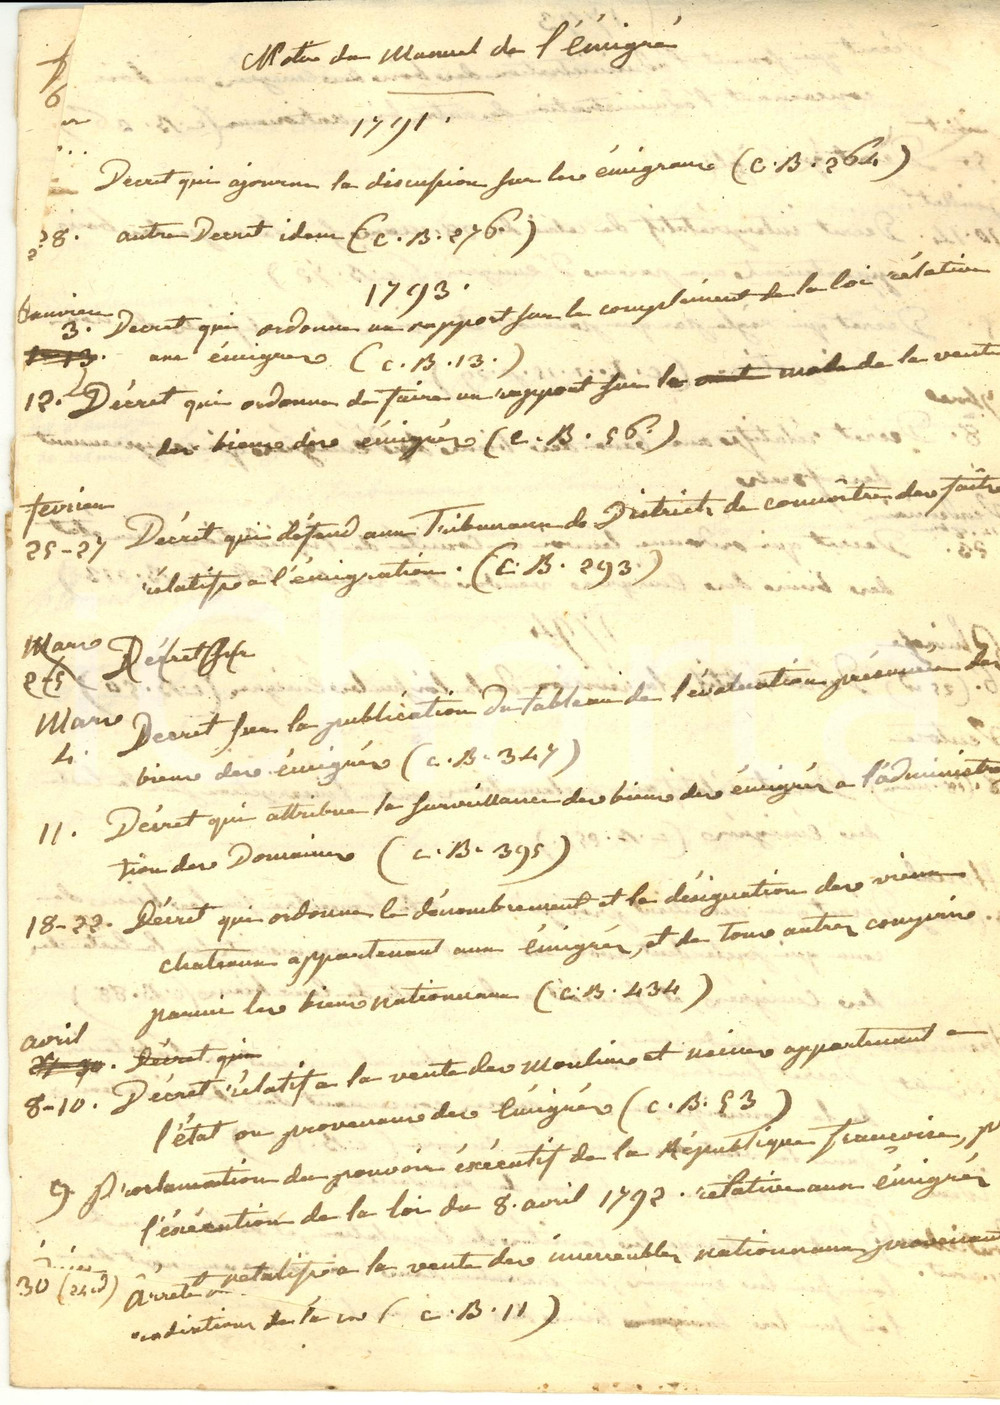 Notte du Manuel de l'émigré
1791.
Decret qui ajourne la discussion sur les émigrans (C. B. 264)
28. autre Decret idem (C. B. 276.)
1793.
Janvier
3. Decret qui ordonne un rapport sur le complément de la loi rélative
aux émigrés (C. B. 13.)
12. Décret qui ordonne de faire un rapport sur le mode de la vente
des biens des émigrés (C. B. 56.)
fevrier
25-27 Décret qui défend aux Tribunaux de Districts de connoître des faits
rélatifs a l'émigration. (C. B. 293)
Mars Décret sur
2-5
Mars
4. Decret sur la publication du tableau de l'évaluation présumée des
biens des émigrés (C. B. 347)
11. Décret qui attribue la surveillance des biens des émigrés a l'administra
tion des Domaines (C. B. 395)
18-22. Décret qui ordonne le dénombrement et la désignation des vieux
chateaux appartenant aux émigrés, et de tous autres compris
parmi les biens nationnaux (C. B. 434)
avril
Décret qui
8-10. Décret rélatif a la vente des Moulins et usines appartenant a
l'état ou provenans des Emigrés (C. B. 53)
9. Proclamation du pouvoir éxécutif de la République françoise, p
l'éxécution de la loi du 8. avril 1792. relative aux émigrés
30 (24 d) Arrete relatifs a la vente des immeubles nationnaux provenant
de la (C. B. 11)